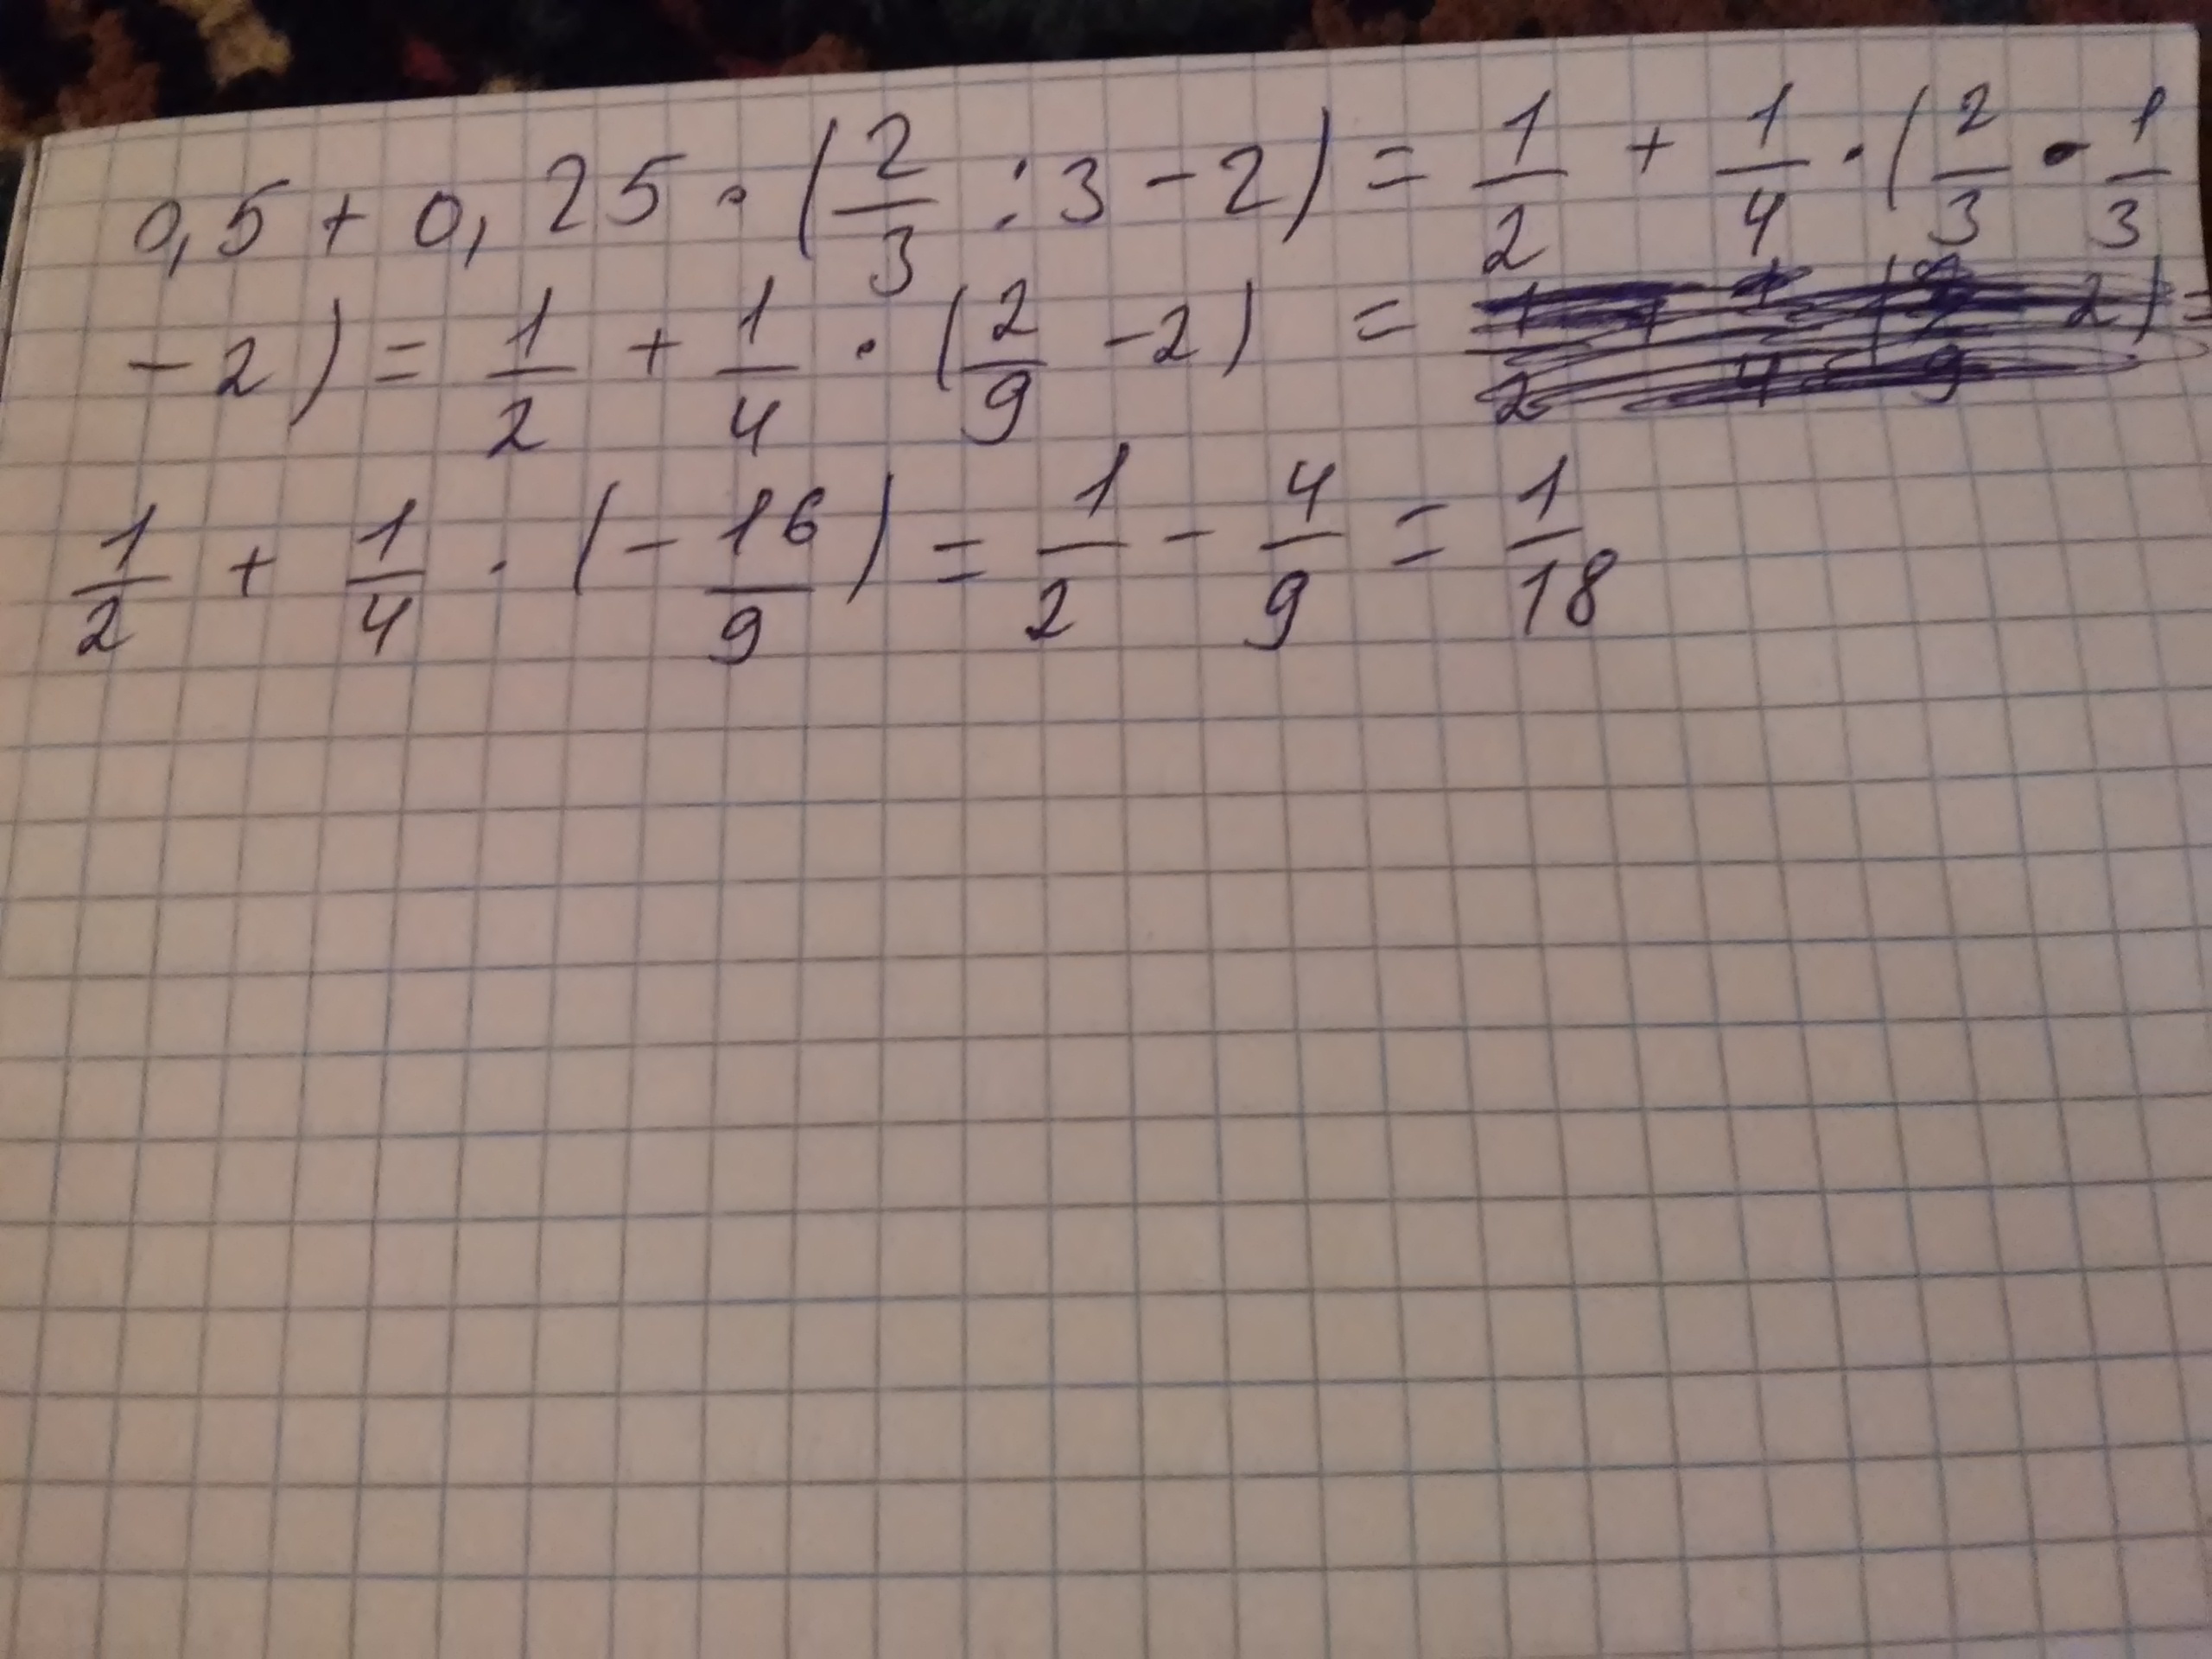 0,5 + 0,25 · (2/3 : 3 - 2) = 1/2 + 1/4 · (2/3 · 1/3
- 2) = 1/2 + 1/4 · (2/9 - 2) =
1/2 + 1/4 · (- 16/9) = 1/2 - 4/9 = 1/18